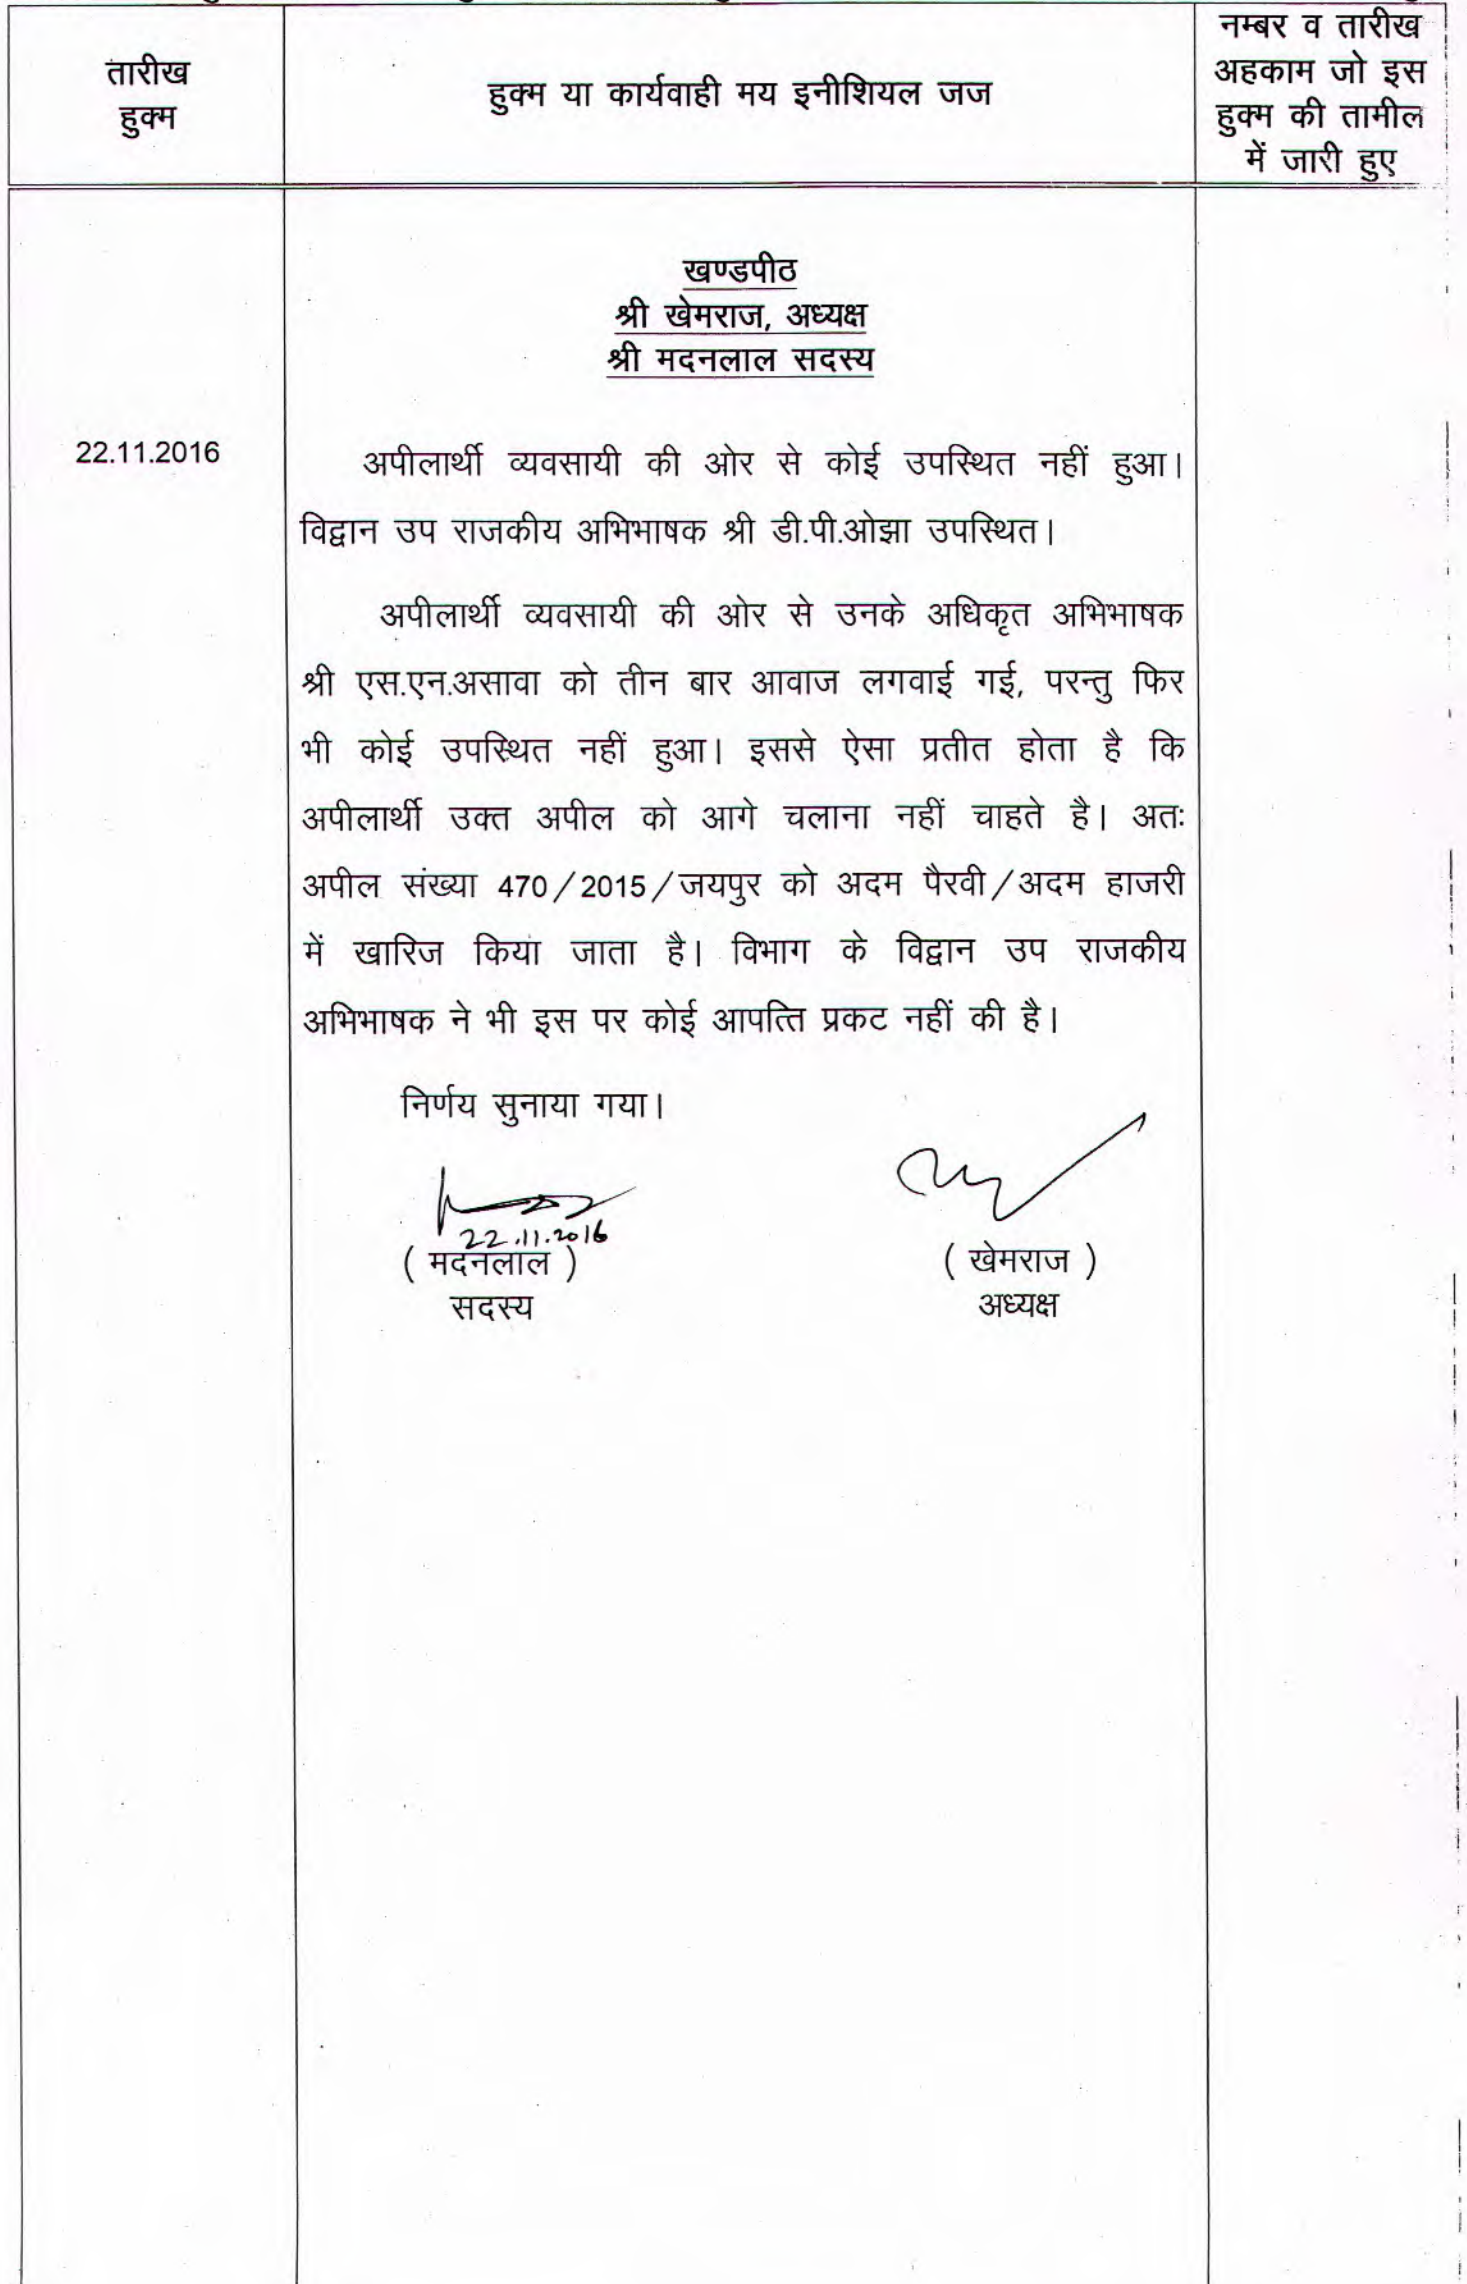 तारीख
हुक्म
हुक्म या कार्यवाही मय इनीशियल जज
नम्बर व तारीख
अहकाम जो इस
हुक्म की तामील
में जारी हुए
खण्डपीठ
श्री खेमराज, अध्यक्ष
श्री मदनलाल सदस्य
22.11.2016
अपीलार्थी व्यवसायी की ओर से कोई उपस्थित नहीं हुआ।
विद्वान उप राजकीय अभिभाषक श्री डी.पी.ओझा उपस्थित।
अपीलार्थी व्यवसायी की ओर से उनके अधिकृत अभिभाषक
श्री एस.एन.असावा को तीन बार आवाज लगवाई गई, परन्तु फिर
भी कोई उपस्थित नहीं हुआ। इससे ऐसा प्रतीत होता है कि
अपीलार्थी उक्त अपील को आगे चलाना नहीं चाहते है। अतः
अपील संख्या 470/2015/जयपुर को अदम पैरवी/अदम हाजरी
में खारिज किया जाता है। विभाग के विद्वान उप राजकीय
अभिभाषक ने भी इस पर कोई आपत्ति प्रकट नहीं की है।
निर्णय सुनाया गया।
22.11.2016
( मदनलाल )
सदस्य
( खेमराज )
अध्यक्ष